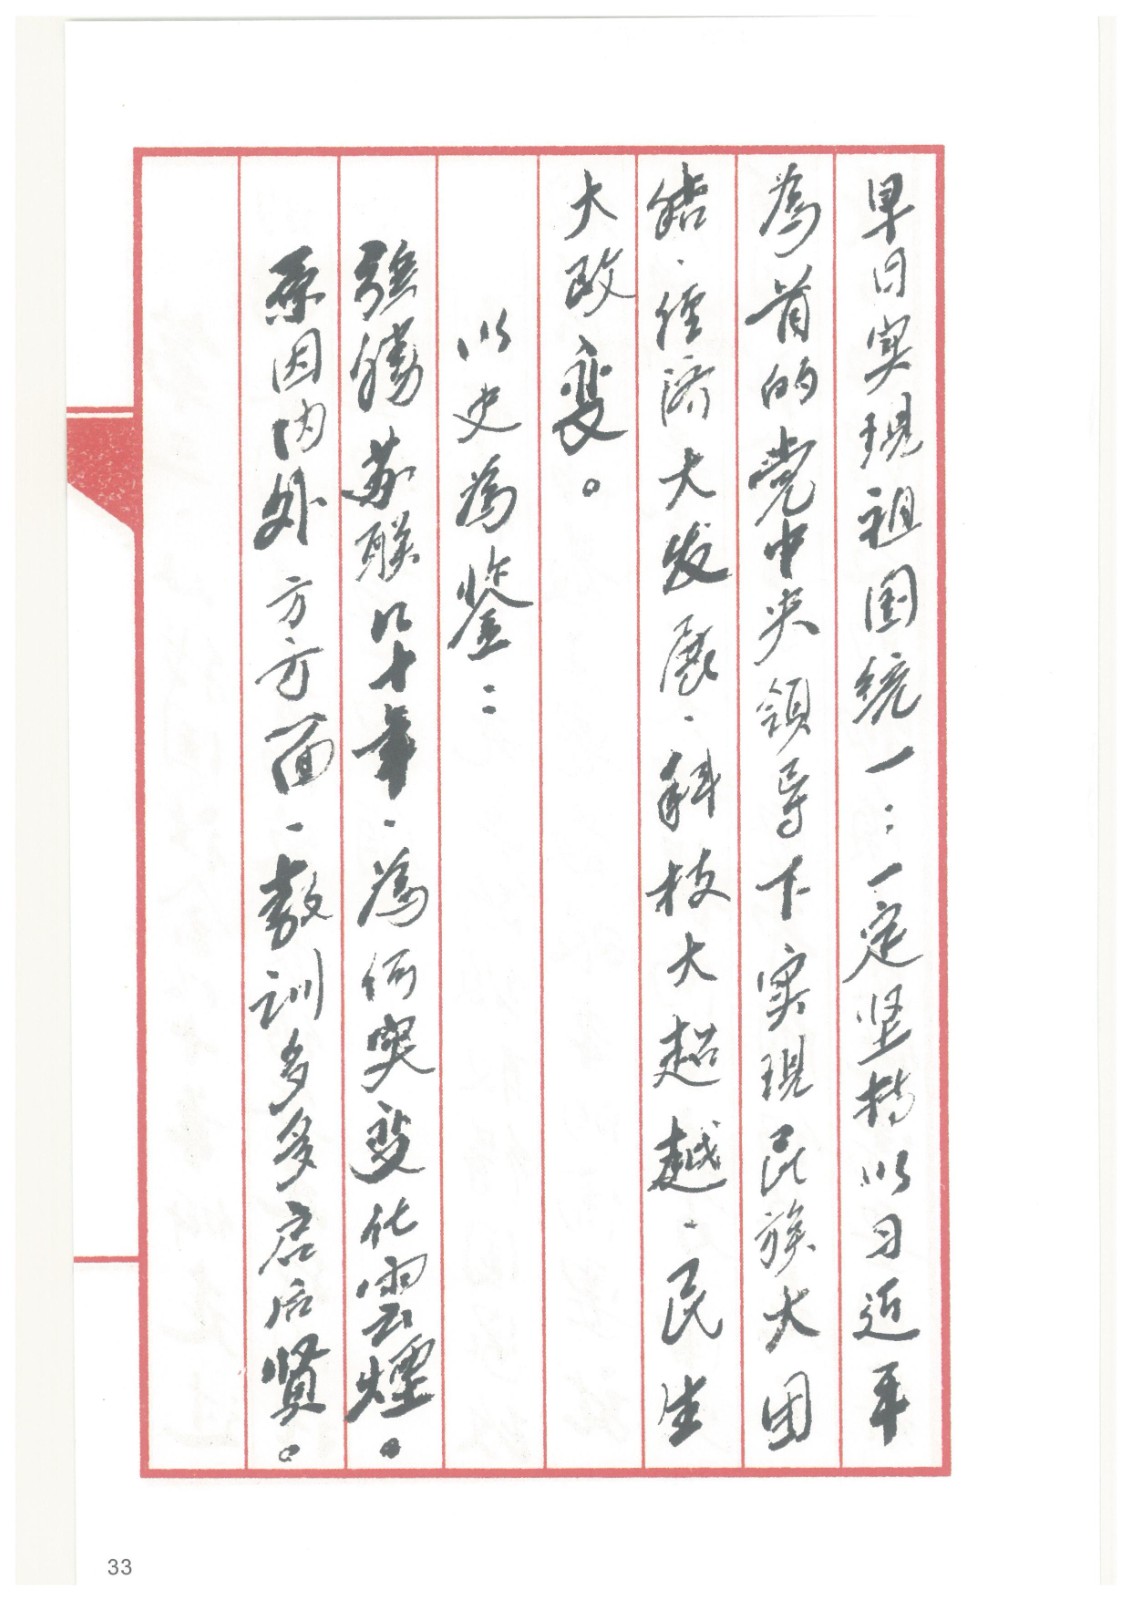 早日实現祖国统一：一定坚持以习近平
為首的党中央领导下实現民族大团
结、经济大发展、科技大超越、民生
大改变。
以史為鉴：
强勝苏联八十年、為何突变化雲煙。
原因内外方方面、教训多多启后贤。
33